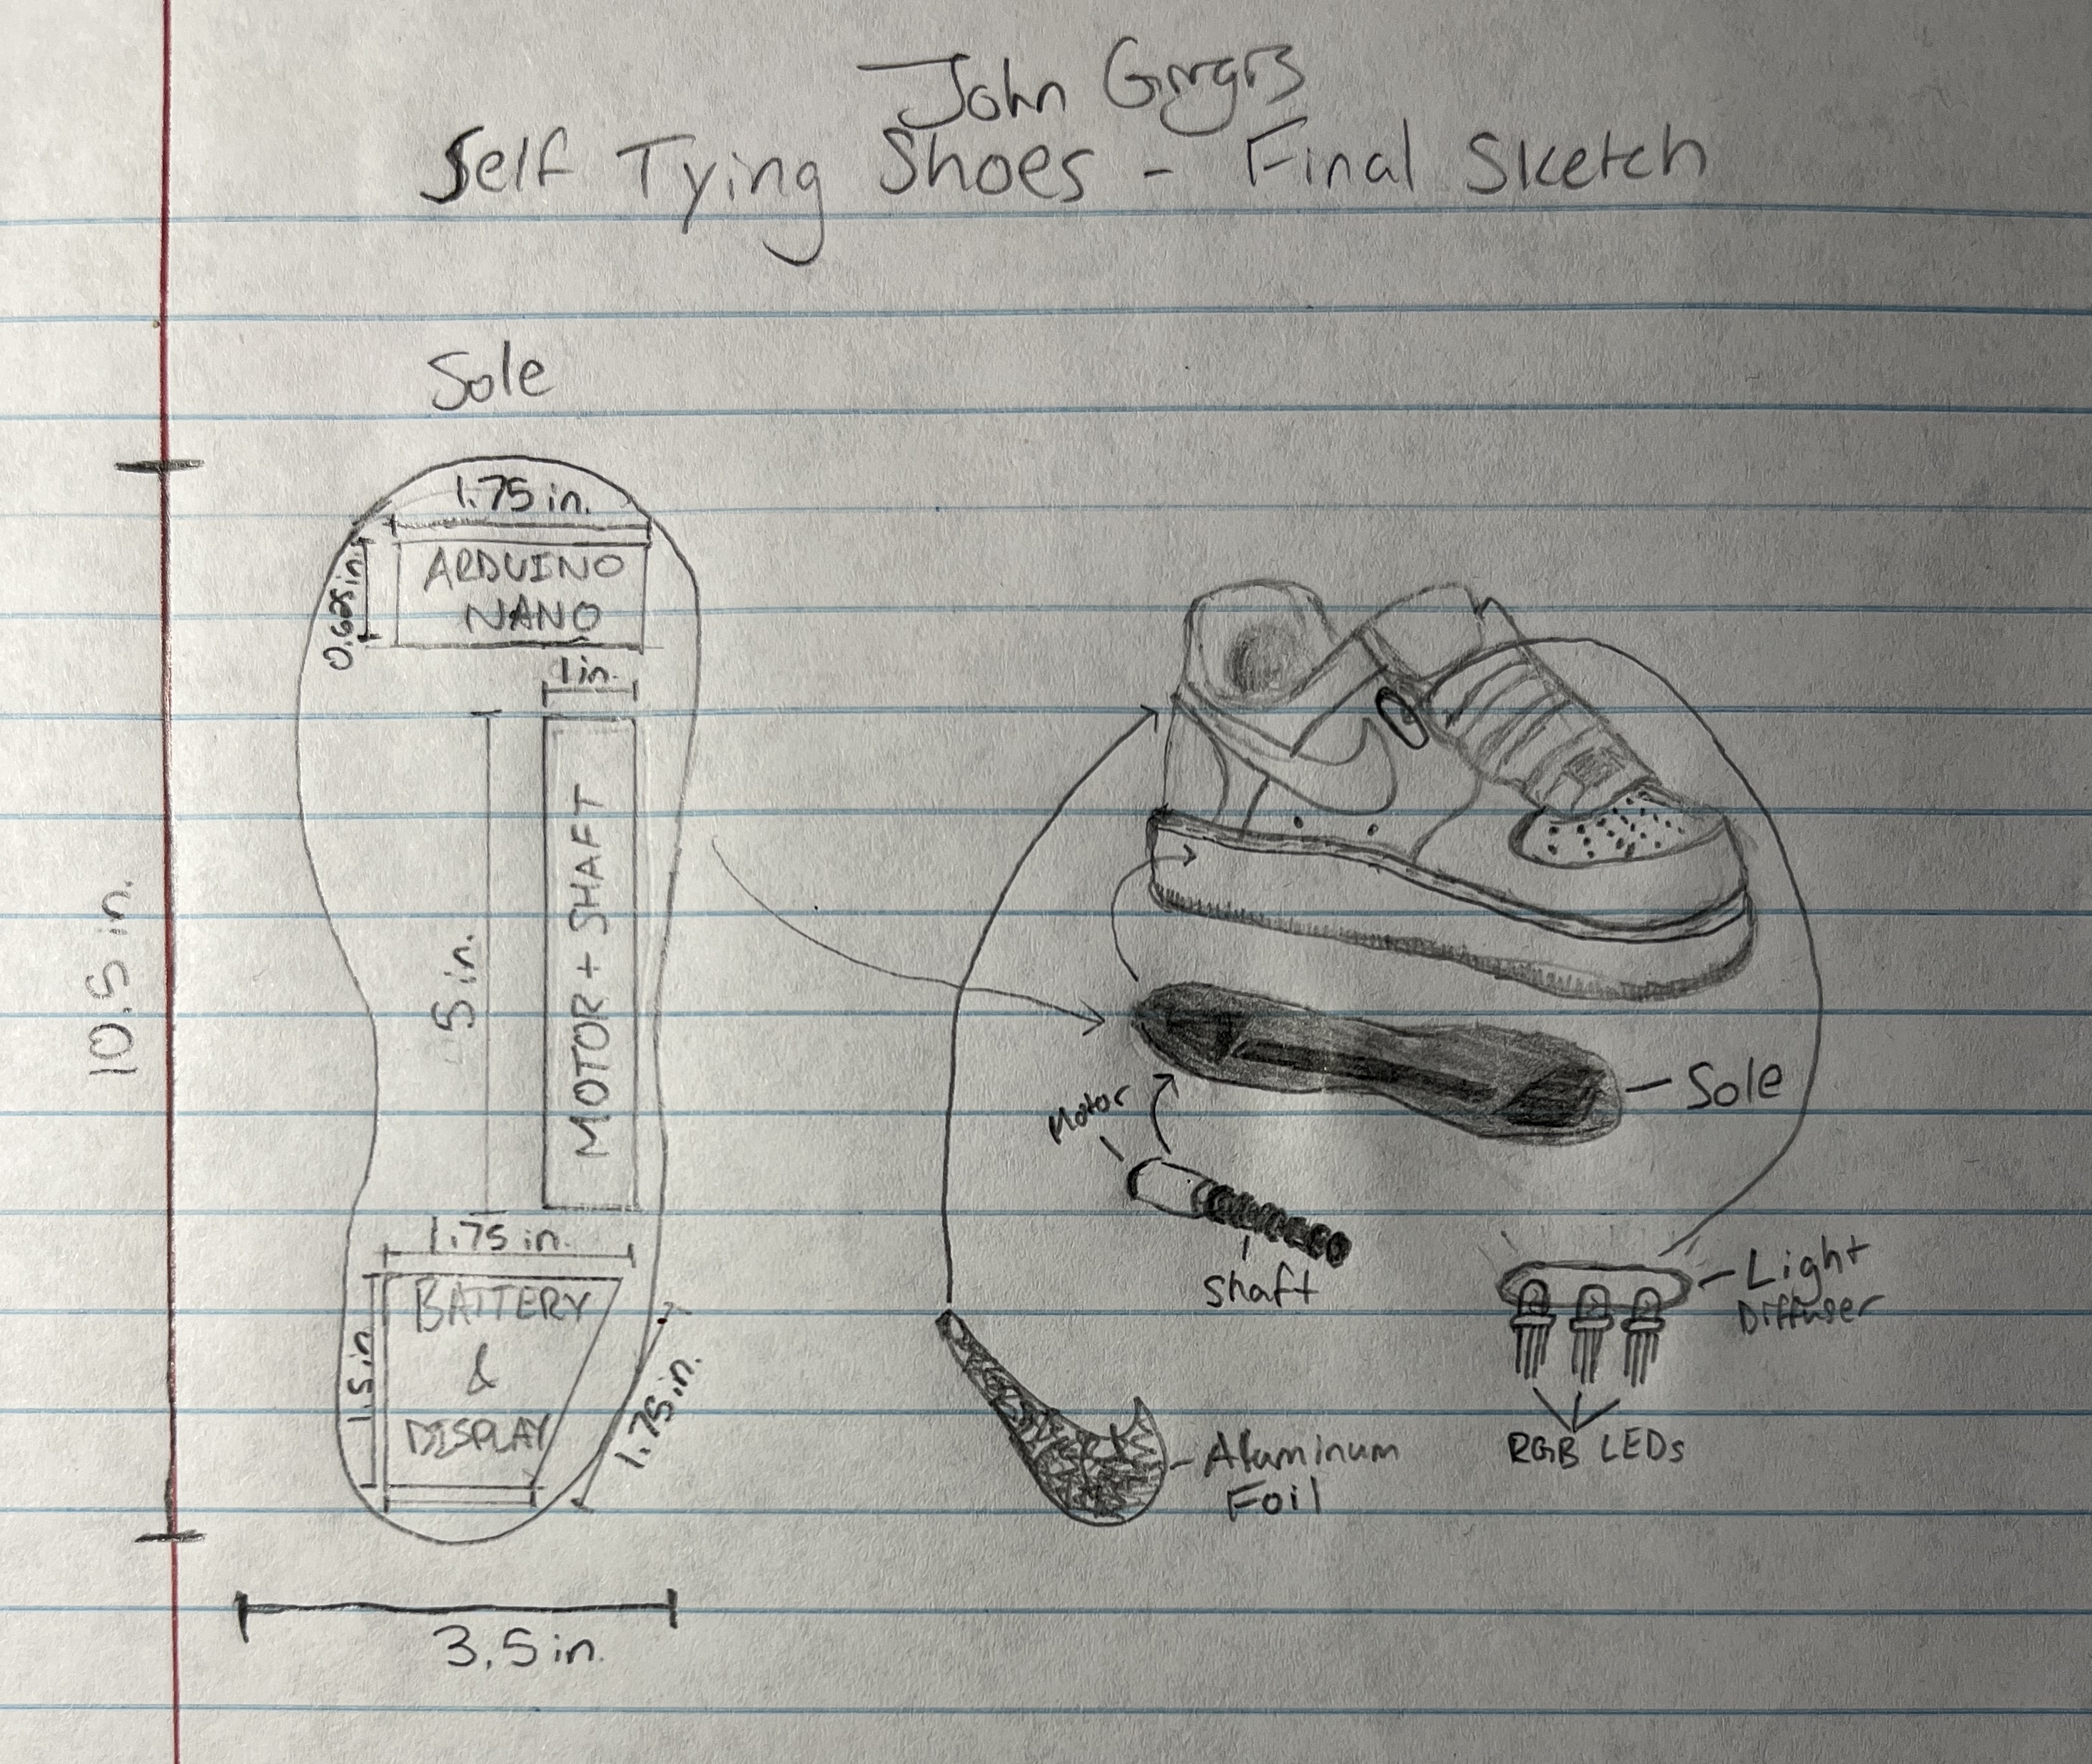 John
Self Tying Shoes - Final Sketch
Sole
1.75 in.
0.625 in.
ARDUINO
NANO
1 in.
10.5 in.
5 in.
MOTOR + SHAFT
1.75 in.
1.5 in.
BATTERY
&
DISPLAY
1.75 in.
3.5 in.
Sole
Motor
Shaft
Light
Diffuser
RGB LEDs
Aluminum
Foil